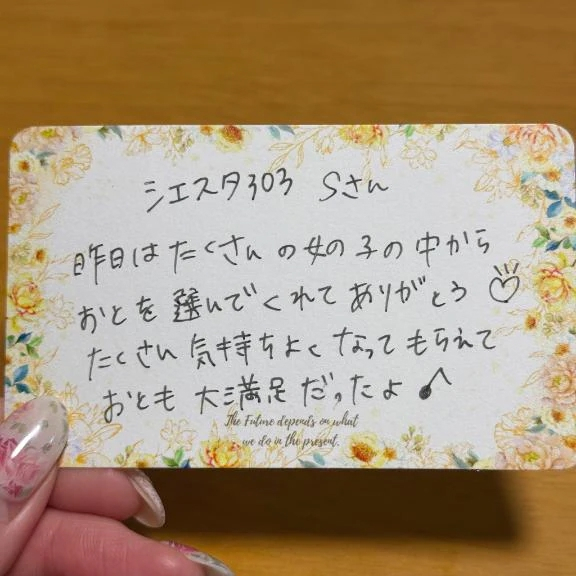 シエスタ303 Sさん
昨日はたくさんの女の子の中から
おとを選んでくれてありがとう♡
たくさん気持ちよくなってもらえて
おとも大満足だったよ♪
The Future depends on what
we do in the present.